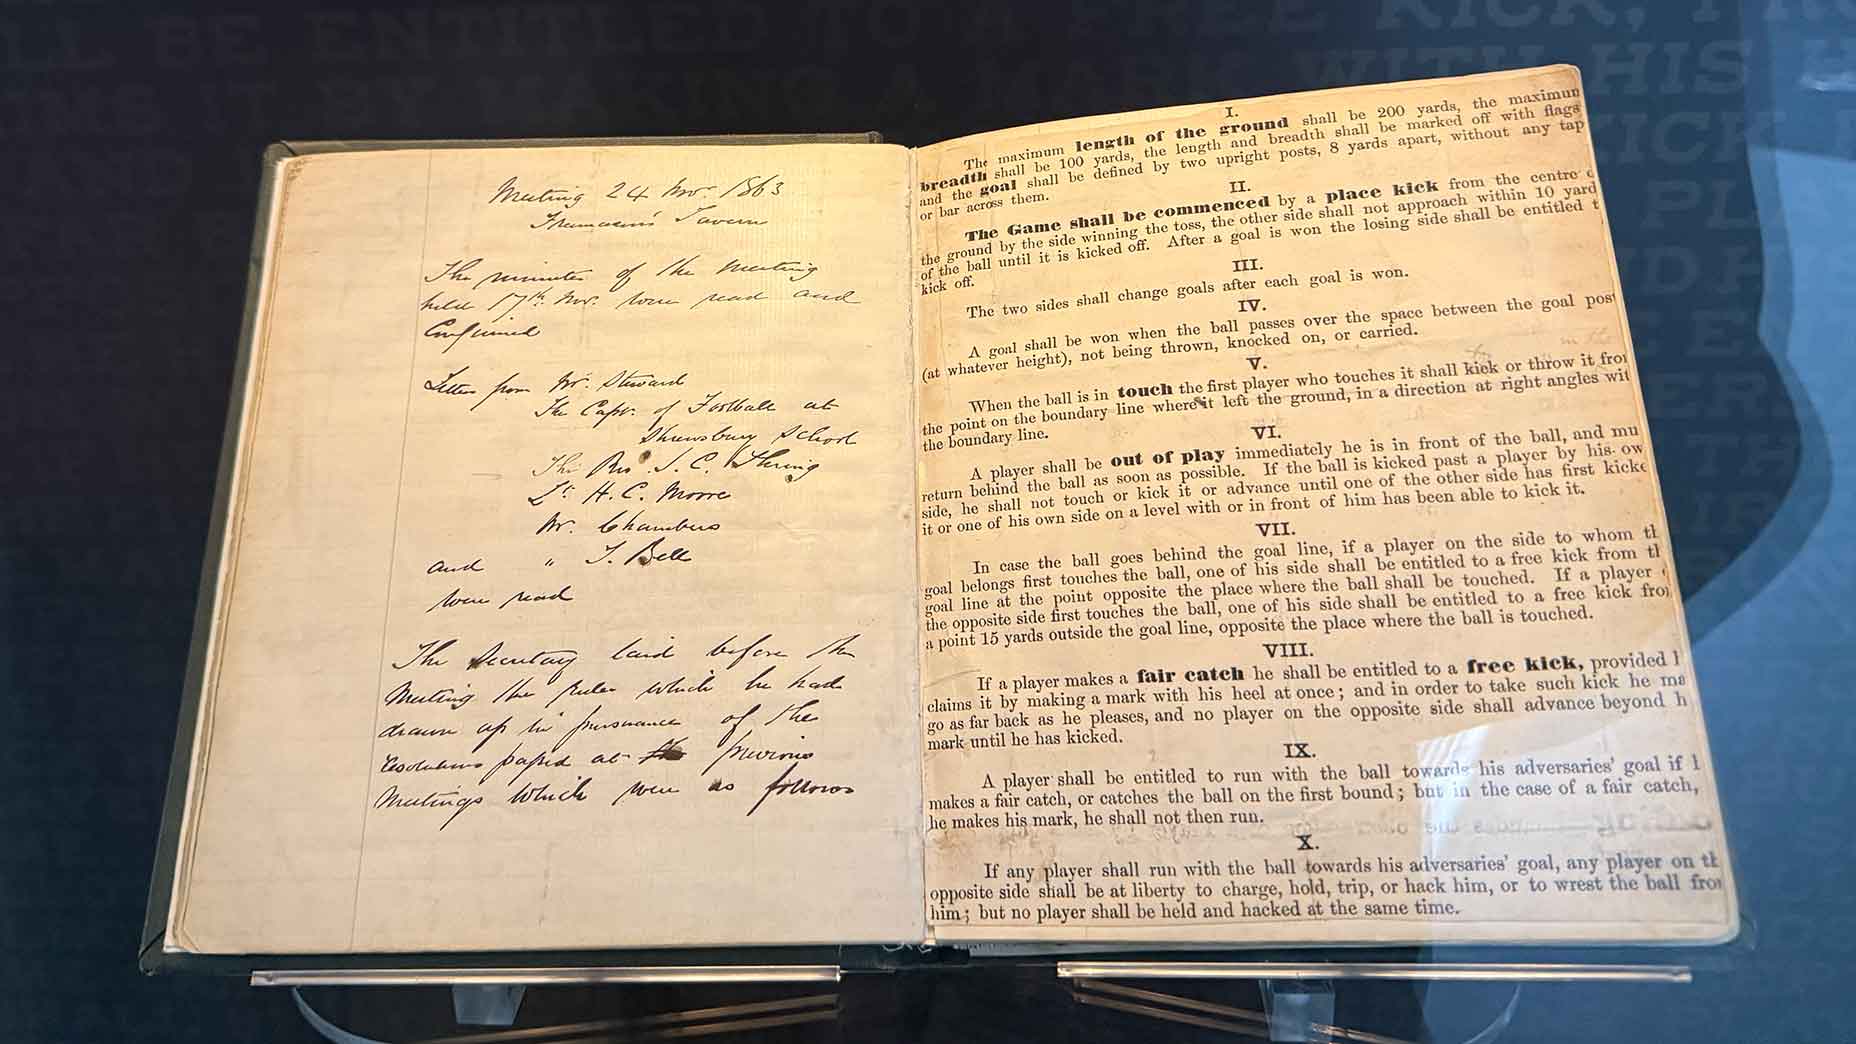 LL BE ENTITLED TO A FREE KICK, PRO
MS IT BY MAKING A MARK WITH HIS H
Meeting 24 Novr. 1863
Freemason's Tavern
The minutes of the Meeting
held 17th. Nov. were read and
Confirmed
Letters from Mr. Steward
The Captn. of Football at
Shrewsbury School
The Rev. J. C. Thring
Lt. H. C. Moore
Mr. Chambers
and " J. Bell
were read
The Secretary laid before the
Meeting the rules which he had
drawn up in pursuance of the
resolutions passed at previous
Meetings which were as follows
I.
The maximum length of the ground shall be 200 yards, the maximum
breadth shall be 100 yards, the length and breadth shall be marked off with flags
and the goal shall be defined by two upright posts, 8 yards apart, without any tap
or bar across them.
II.
The Game shall be commenced by a place kick from the centre o
the ground by the side winning the toss, the other side shall not approach within 10 yard
of the ball until it is kicked off. After a goal is won the losing side shall be entitled t
kick off.
III.
The two sides shall change goals after each goal is won.
IV.
A goal shall be won when the ball passes over the space between the goal post
(at whatever height), not being thrown, knocked on, or carried.
V.
When the ball is in touch the first player who touches it shall kick or throw it fro
the point on the boundary line where it left the ground, in a direction at right angles wit
the boundary line.
VI.
A player shall be out of play immediately he is in front of the ball, and mu
return behind the ball as soon as possible. If the ball is kicked past a player by his ow
side, he shall not touch or kick it or advance until one of the other side has first kicke
it or one of his own side on a level with or in front of him has been able to kick it.
VII.
In case the ball goes behind the goal line, if a player on the side to whom th
goal belongs first touches the ball, one of his side shall be entitled to a free kick from th
goal line at the point opposite the place where the ball shall be touched. If a player o
the opposite side first touches the ball, one of his side shall be entitled to a free kick fro
a point 15 yards outside the goal line, opposite the place where the ball is touched.
VIII.
If a player makes a fair catch he shall be entitled to a free kick, provided h
claims it by making a mark with his heel at once; and in order to take such kick he ma
go as far back as he pleases, and no player on the opposite side shall advance beyond h
mark until he has kicked.
IX.
A player shall be entitled to run with the ball towards his adversaries' goal if h
makes a fair catch, or catches the ball on the first bound; but in the case of a fair catch,
he makes his mark, he shall not then run.
X.
If any player shall run with the ball towards his adversaries' goal, any player on th
opposite side shall be at liberty to charge, hold, trip, or hack him, or to wrest the ball from
him; but no player shall be held and hacked at the same time.